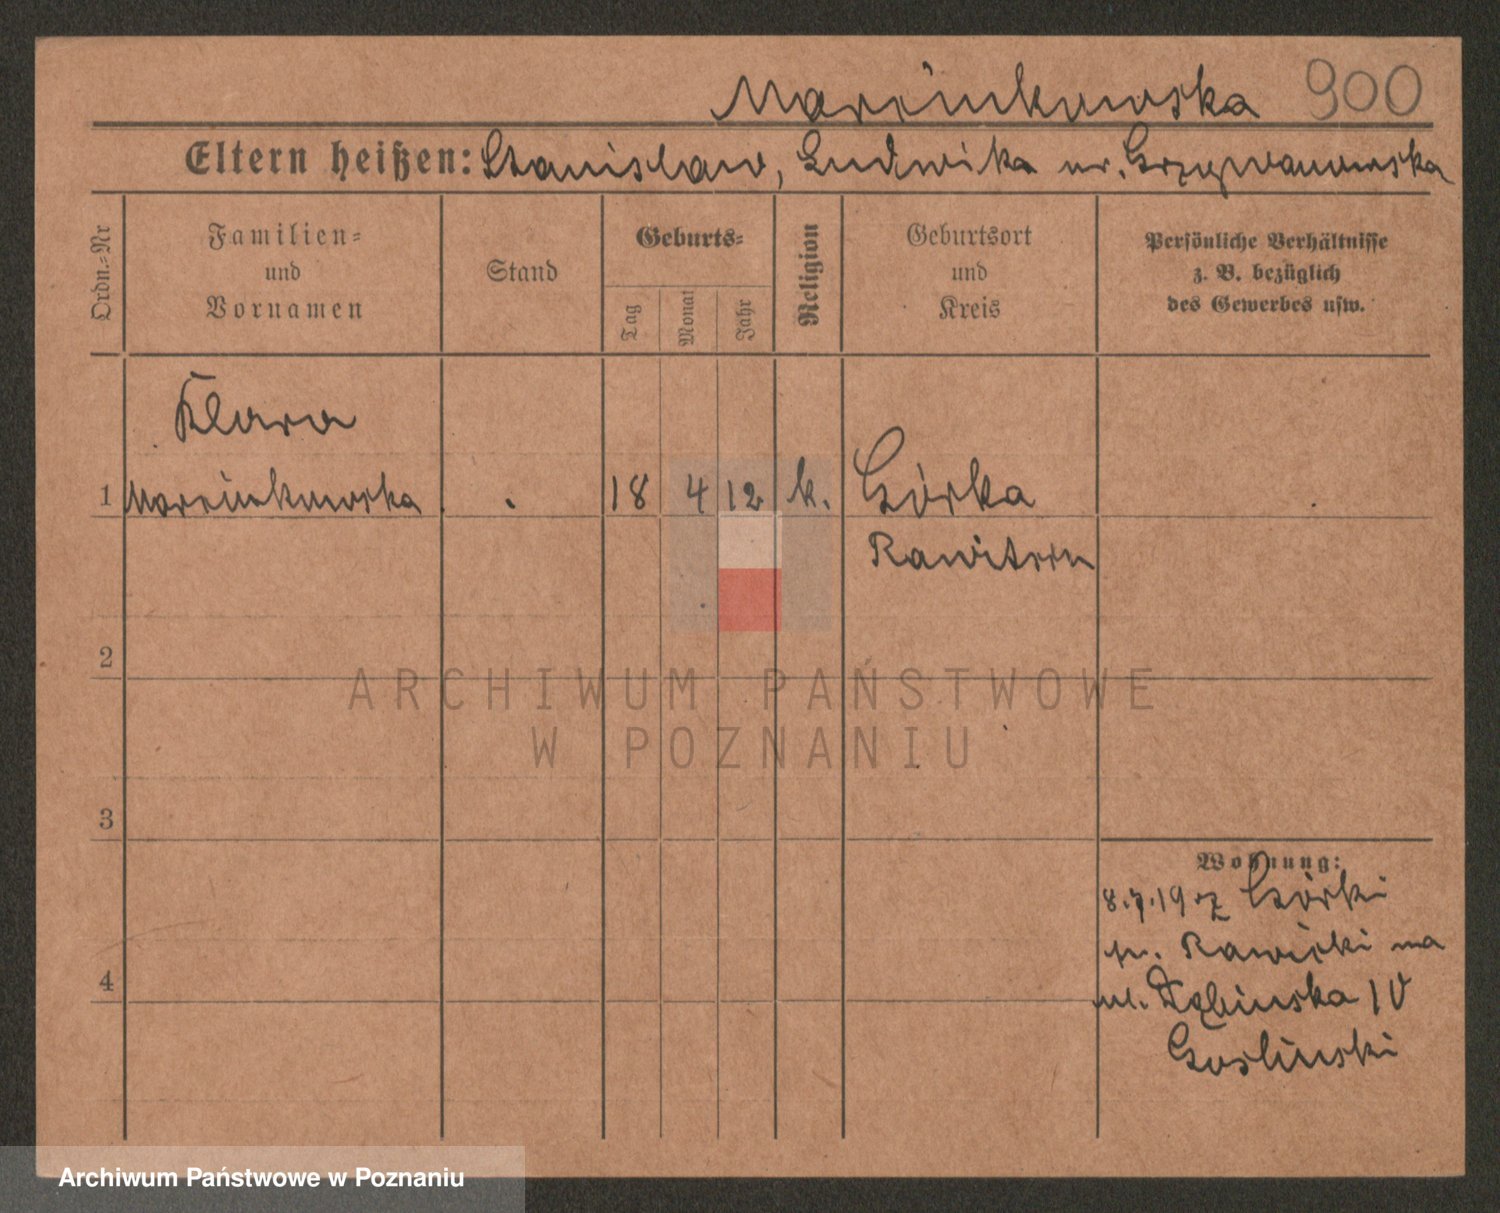 Marcinkowska 900
Eltern heißen: Stanisław, Ludwika ur.
Ordn.-Nr
Familien-
und
Vornamen
Stand
Geburts-
Tag
Monat
Jahr
Religion
Geburtsort
und
Kreis
Persönliche Verhältnisse
z. B. bezüglich
des Gewerbes usw.
Klara
1 Marcinkowska 18 4 12 k. Górka
Rawitsch
2
ARCHIWUM PAŃSTWOWE
W POZNANIU
3
Wohnung:
8.7.19 z Górki
Rawicki na
ul. Dębinska
Gosliński
4
Archiwum Państwowe w Poznaniu